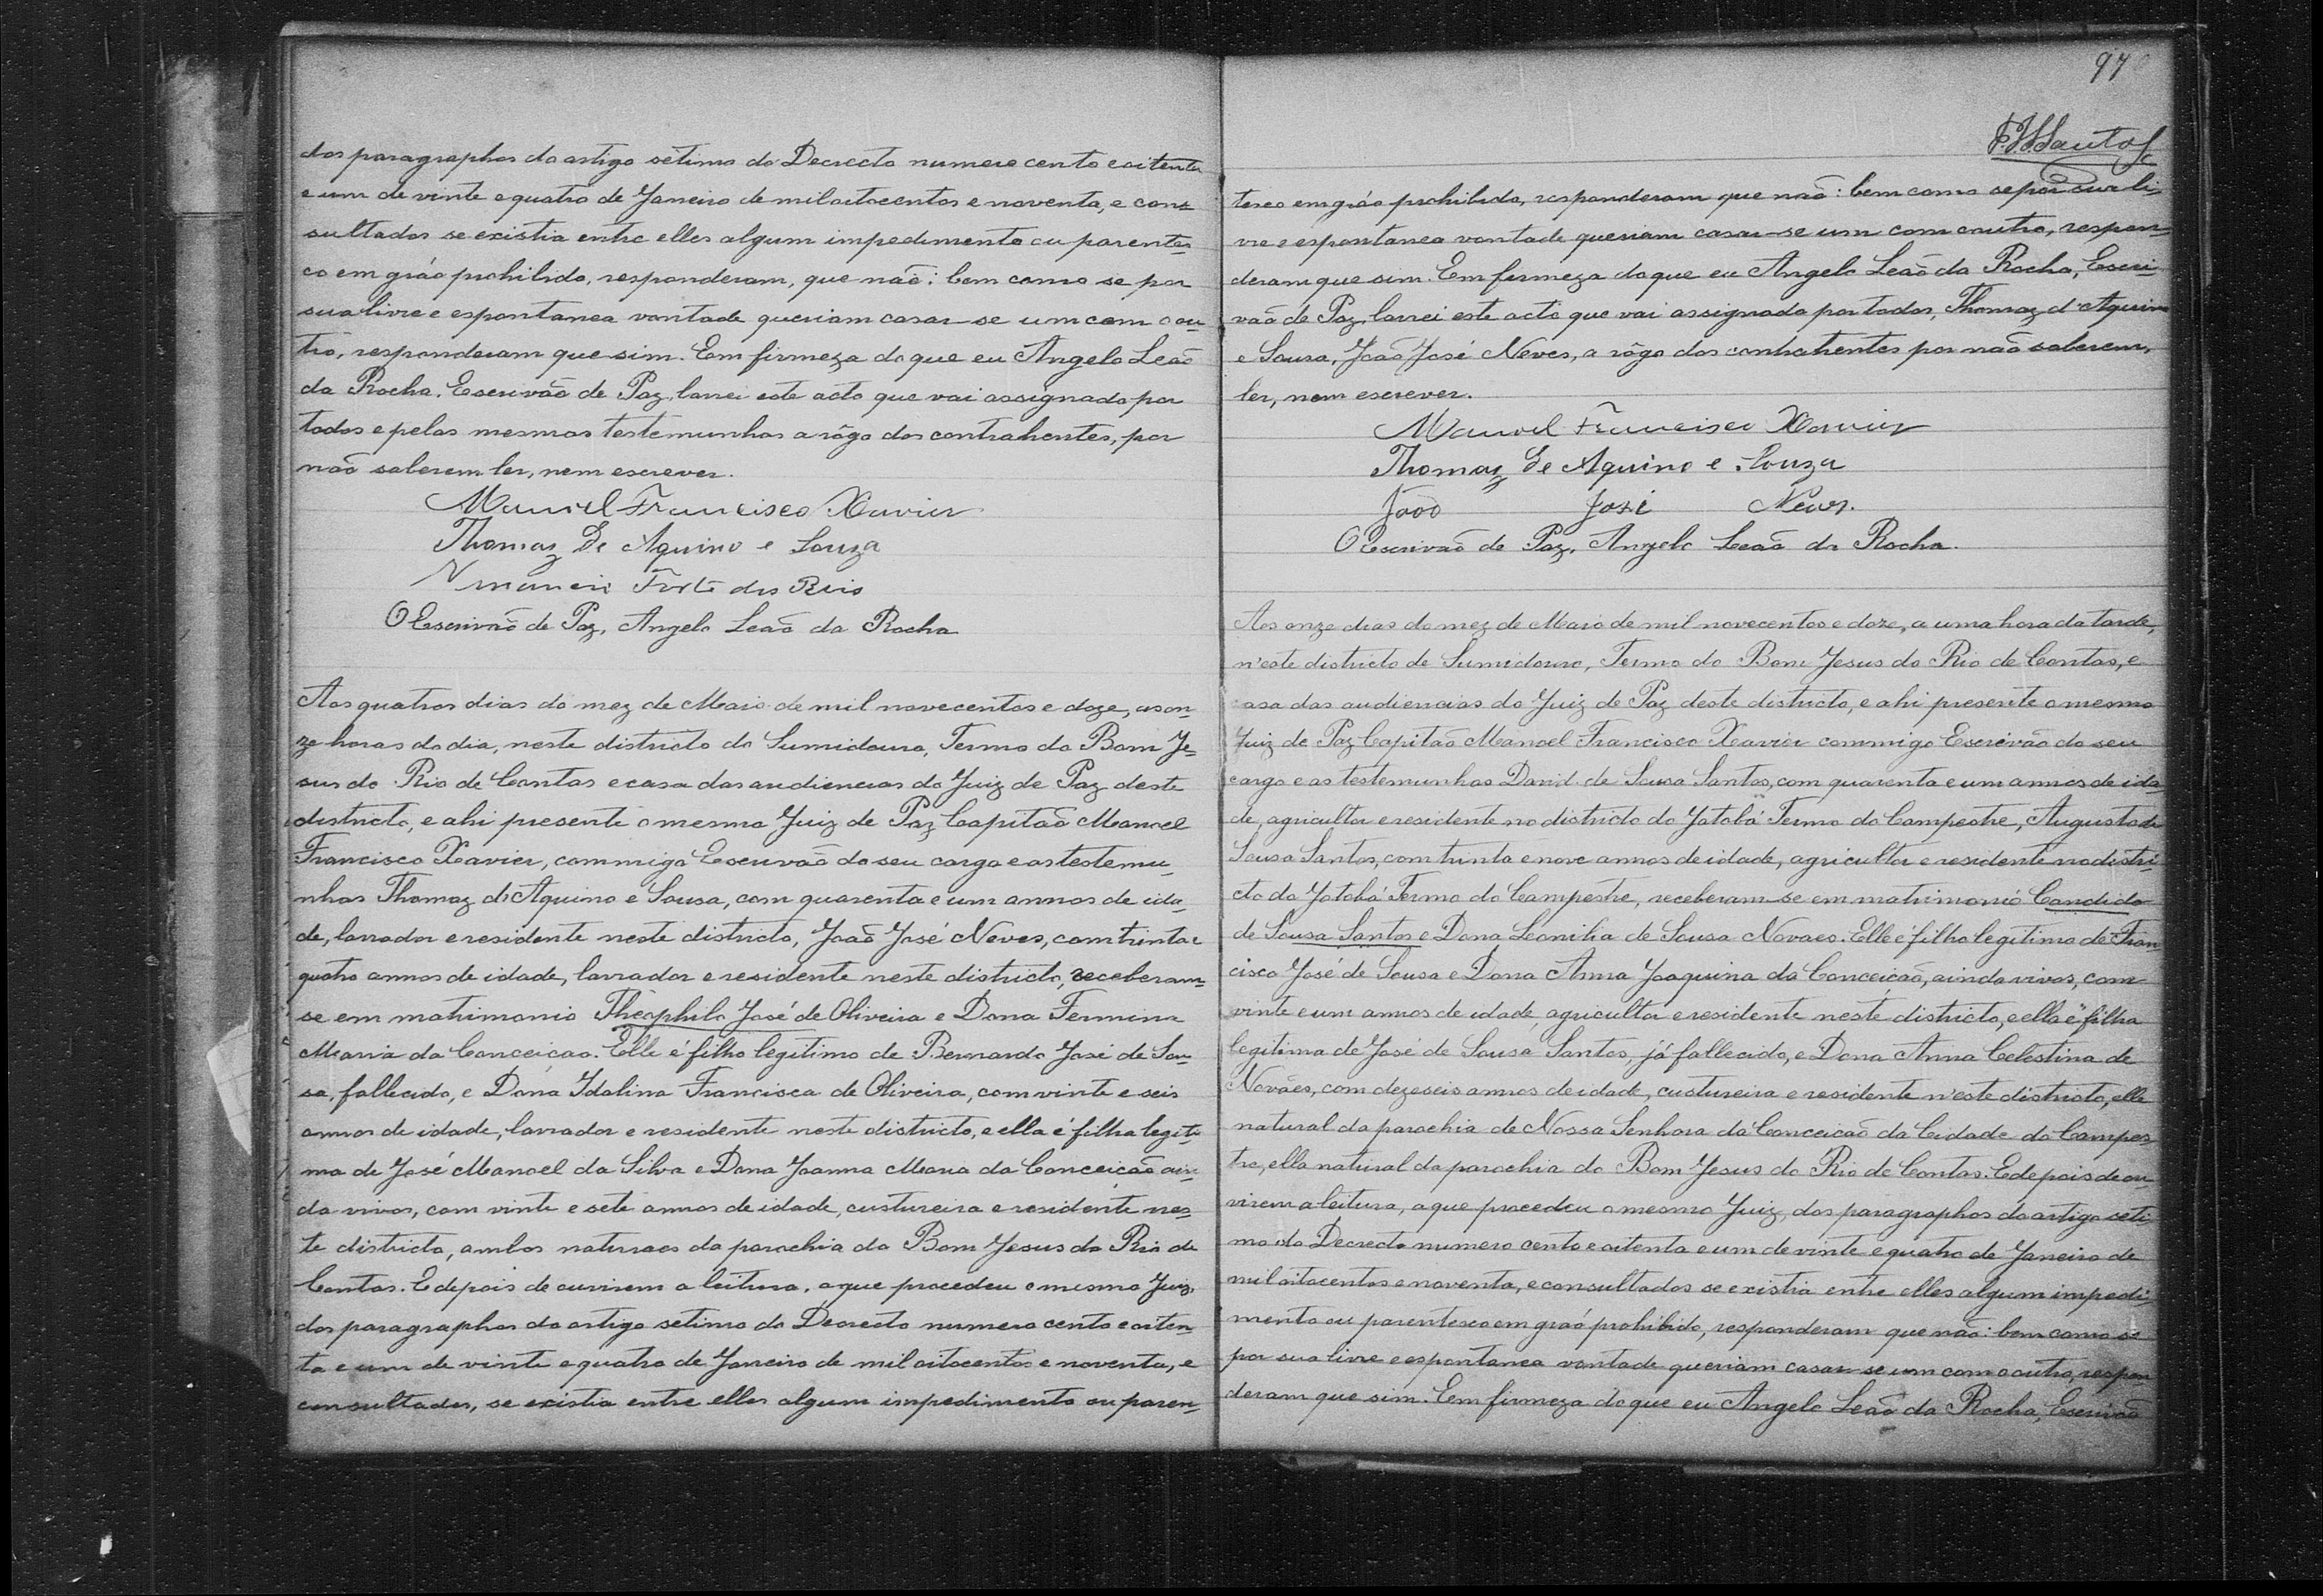 dos paragraphos do artigo sétimo do Decrecto numero cento eoitenta
e um de vinte e quatro de Janeiro de miloitocentos e noventa, e con-
sultados se existia entre elles algum impedimento ou parentes-
co em gráo prohibido, responderam, que não: bem como se por
sua livre e espontanea vontade queriam casar-se um com o ou-
tro, responderam que sim. Em firmeza do que eu Angelo Leão
da Rocha, Escrivão de Paz, lavrei este acto que vai assignado por
todos e pelas mesmas testemunhas a rôgo dos contrahentes, por
não saberem ler, nem escrever.
Manoel Francisco Xavier
Thomaz De Aquino e Souza
Forte dos Reis
O Escrivão de Paz, Angelo Leão da Rocha
Aos quatros dias do mez de Maio de mil novecentos e doze, as on-
ze horas do dia, neste districto do Sumidouro, Termo do Bom Je-
sus do Rio de Contas e casa das audiencias do Juiz de Paz deste
districto, e ahi presente o mesmo Juiz de Paz Capitão Manoel
Francisco Xavier, commigo Escrivão do seu cargo e as testemu-
nhas Thomaz d'Aquino e Sousa, com quarenta e um annos de ida-
de, lavrador e residente neste districto, João José Neves, com trinta e
quatro annos de idade, lavrador e residente neste districto, receberam-
se em matrimonio Théophilo José de Oliveira e Dona Fermina
Maria da Conceição. Elle é filho legitimo de Bernardo José de Sou-
sa, fallecido, e Dona Idalina Francisca de Oliveira, com vinte e seis
annos de idade, lavrador e residente neste districto, e ella é filha legiti-
ma de José Manoel da Silva e Dona Joanna Maria da Conceição ain-
da vivos, com vinte e sete annos de idade, custureira e residente nes-
te districto, ambos naturaes da parochia do Bom Jesus do Rio de
Contas. E depois de ouvirem a leitura, a que procedeu o mesmo Juiz,
dos paragraphos do artigo sétimo do Decrecto numero cento e oiten-
ta e um de vinte e quatro de Janeiro de mil oitocentos e noventa, e
consultados, se existia entre elles algum impedimento ou paren-
97
F. Santos
tesco em gráo prohibido, responderam que não: bem como se por sua li-
vre e espontanea vontade queriam casar-se um com o outro, respon-
deram que sim. Em firmeza do que eu Angelo Leão da Rocha, Escri-
vão de Paz, lavrei este acto que vai assignado por todos, Thomaz d'Aquino
e Sousa, João José Neves, a rôgo dos contrahentes por não saberem,
ler, nem escrever.
Manoel Francisco Xavier
Thomaz De Aquino e Souza
João José Neves.
O Escrivão de Paz, Angelo Leão da Rocha.
Aos onze dias do mez de Maio de mil novecentos e doze, a uma hora da tarde,
n'este districto de Sumidouro, Termo do Bom Jesus do Rio de Contas, e
casa das audiencias do Juiz de Paz deste districto, e ahi presente o mesmo
Juiz de Paz Capitão Manoel Francisco Xavier commigo Escrivão do seu
cargo e as testemunhas David de Sousa Santos, com quarenta e um annos de ida-
de, agricultor e residente no districto do Jatobá Termo do Campestre, Augusto de
Sousa Santos, com trinta e nove annos de idade, agricultor e residente no distri-
cto do Jatobá Termo do Campestre, receberam-se em matrimonio Candido
de Sousa Santos e Dona Leonilia de Sousa Novaes. Elle é filho legitimo de Fran-
cisco José de Sousa e Dona Anna Joaquina da Conceicão, ainda vivos, com
vinte e um annos de idade, agricultor e residente neste districto, e ella é filha
legitima de José de Sousa Santos, já fallecido, e Dona Anna Celestina de
Novães, com dezeseis annos de idade, custureira e residente n'este districto, elle
natural da parochia de Nossa Senhora da Conceicão da Cidade do Campes-
tre, ella natural da parochia do Bom Jesus do Rio de Contas. E depois de ou-
virem a leitura, a que procedeu o mesmo Juiz, dos paragraphos do artigo seti-
mo do Decrecto numero cento e oitenta e um de vinte e quatro de Janeiro de
mil oitocentos e noventa, e consultados se existia entre elles algum impedi-
mento ou parentesco em gráo prohibido, responderam que não: bem como se
por sua livre e espontanea vontade queriam casar-se um com o outro, respon-
deram que sim. Em firmeza do que eu Angelo Leão da Rocha, Escrivão